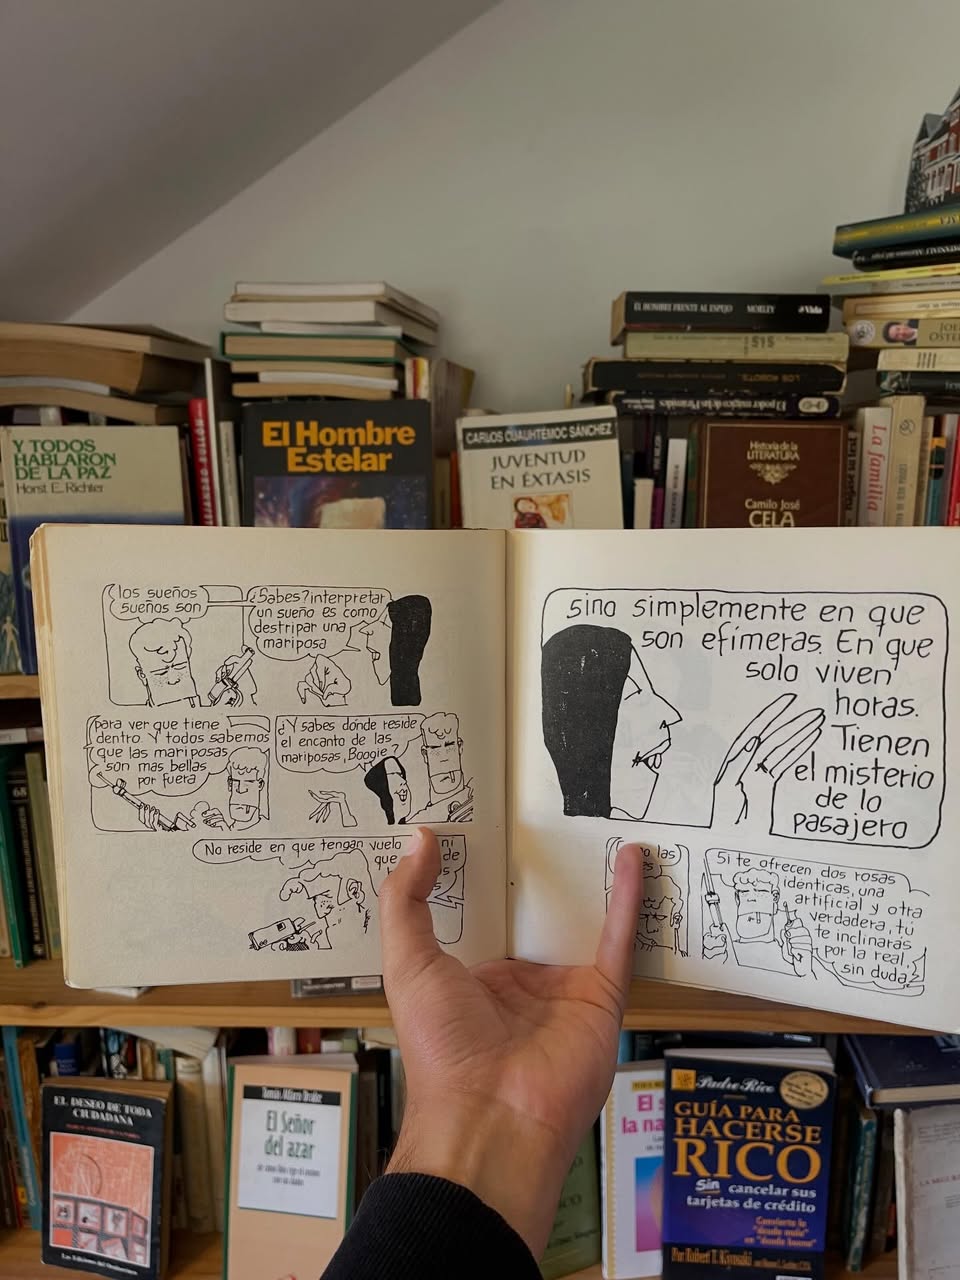 EL HOMBRE FRENTE AL ESPEJO MORLEY Vida
LOS ROBOTS
Y TODOS
HABLARON
DE LA PAZ
Horst E. Richter
El Hombre
Estelar
CARLOS CUAUHTÉMOC SÁNCHEZ
JUVENTUD
EN ÉXTASIS
Historia de la
LITERATURA
Camilo José
CELA
La familia
los sueños
sueños son
¿Sabes? interpretar
un sueño es como
destripar una
mariposa
para ver que tiene
dentro. Y todos sabemos
que las mariposas
son mas bellas
por fuera
¿Y sabes dónde reside
el encanto de las
mariposas, Boogie?
No reside en que tengan vuelo
ni
que
de
sino simplemente en que
son efímeras. En que
solo viven
horas.
Tienen
el misterio
de lo
pasajero
las
Si te ofrecen dos rosas
identicas, una
artificial y otra
verdadera, tú
te inclinarás
por la real,
sin duda?
EL DESEO DE TODA
CIUDADANA
El Señor
del azar
El
la na
Padre Rico
GUÍA PARA
HACERSE
RICO
Sin cancelar sus
tarjetas de crédito
Convierta la
"deuda mala"
en "deuda buena"
Por Robert T. Kiyosaki